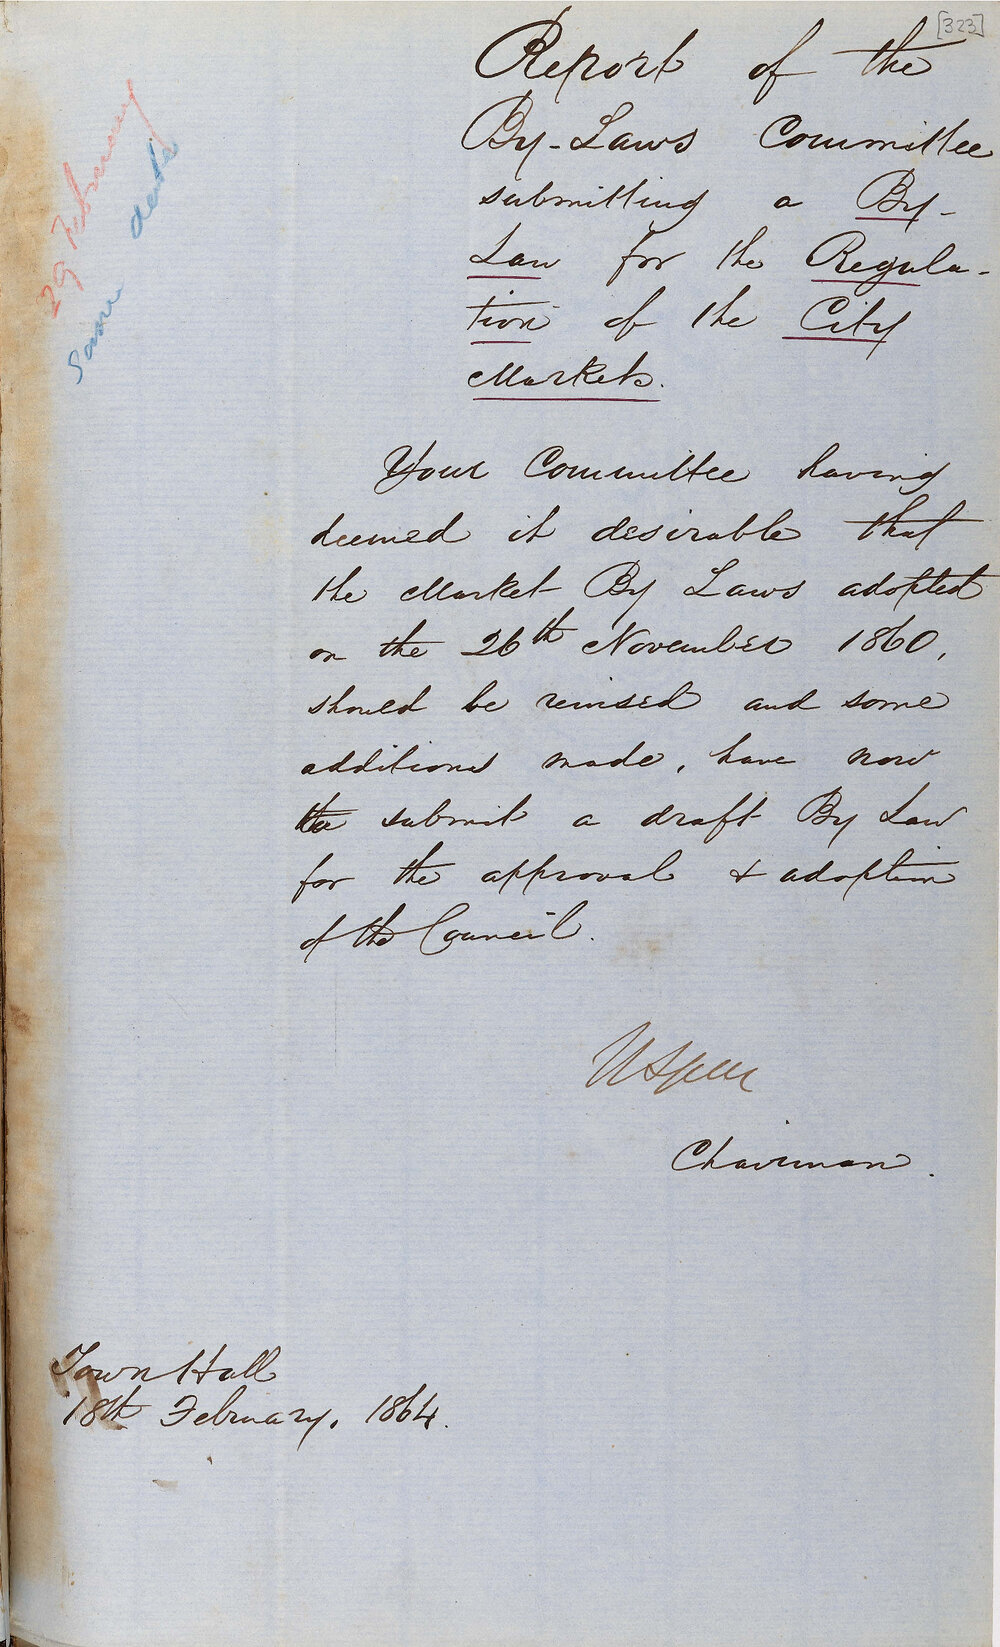 [323]
Report of the
By-Laws Committee
submitting a By-
Law for the Regula-
tion of the City
Markets.
29 February
Same date
Your Committee having
deemed it desirable that
the Market By Laws adopted
on the 26th November 1860,
should be revised and some
additions made, have now
to submit a draft By Law
for the approval & adoption
of the Council.
Chairman.
Town Hall
18th February, 1864.